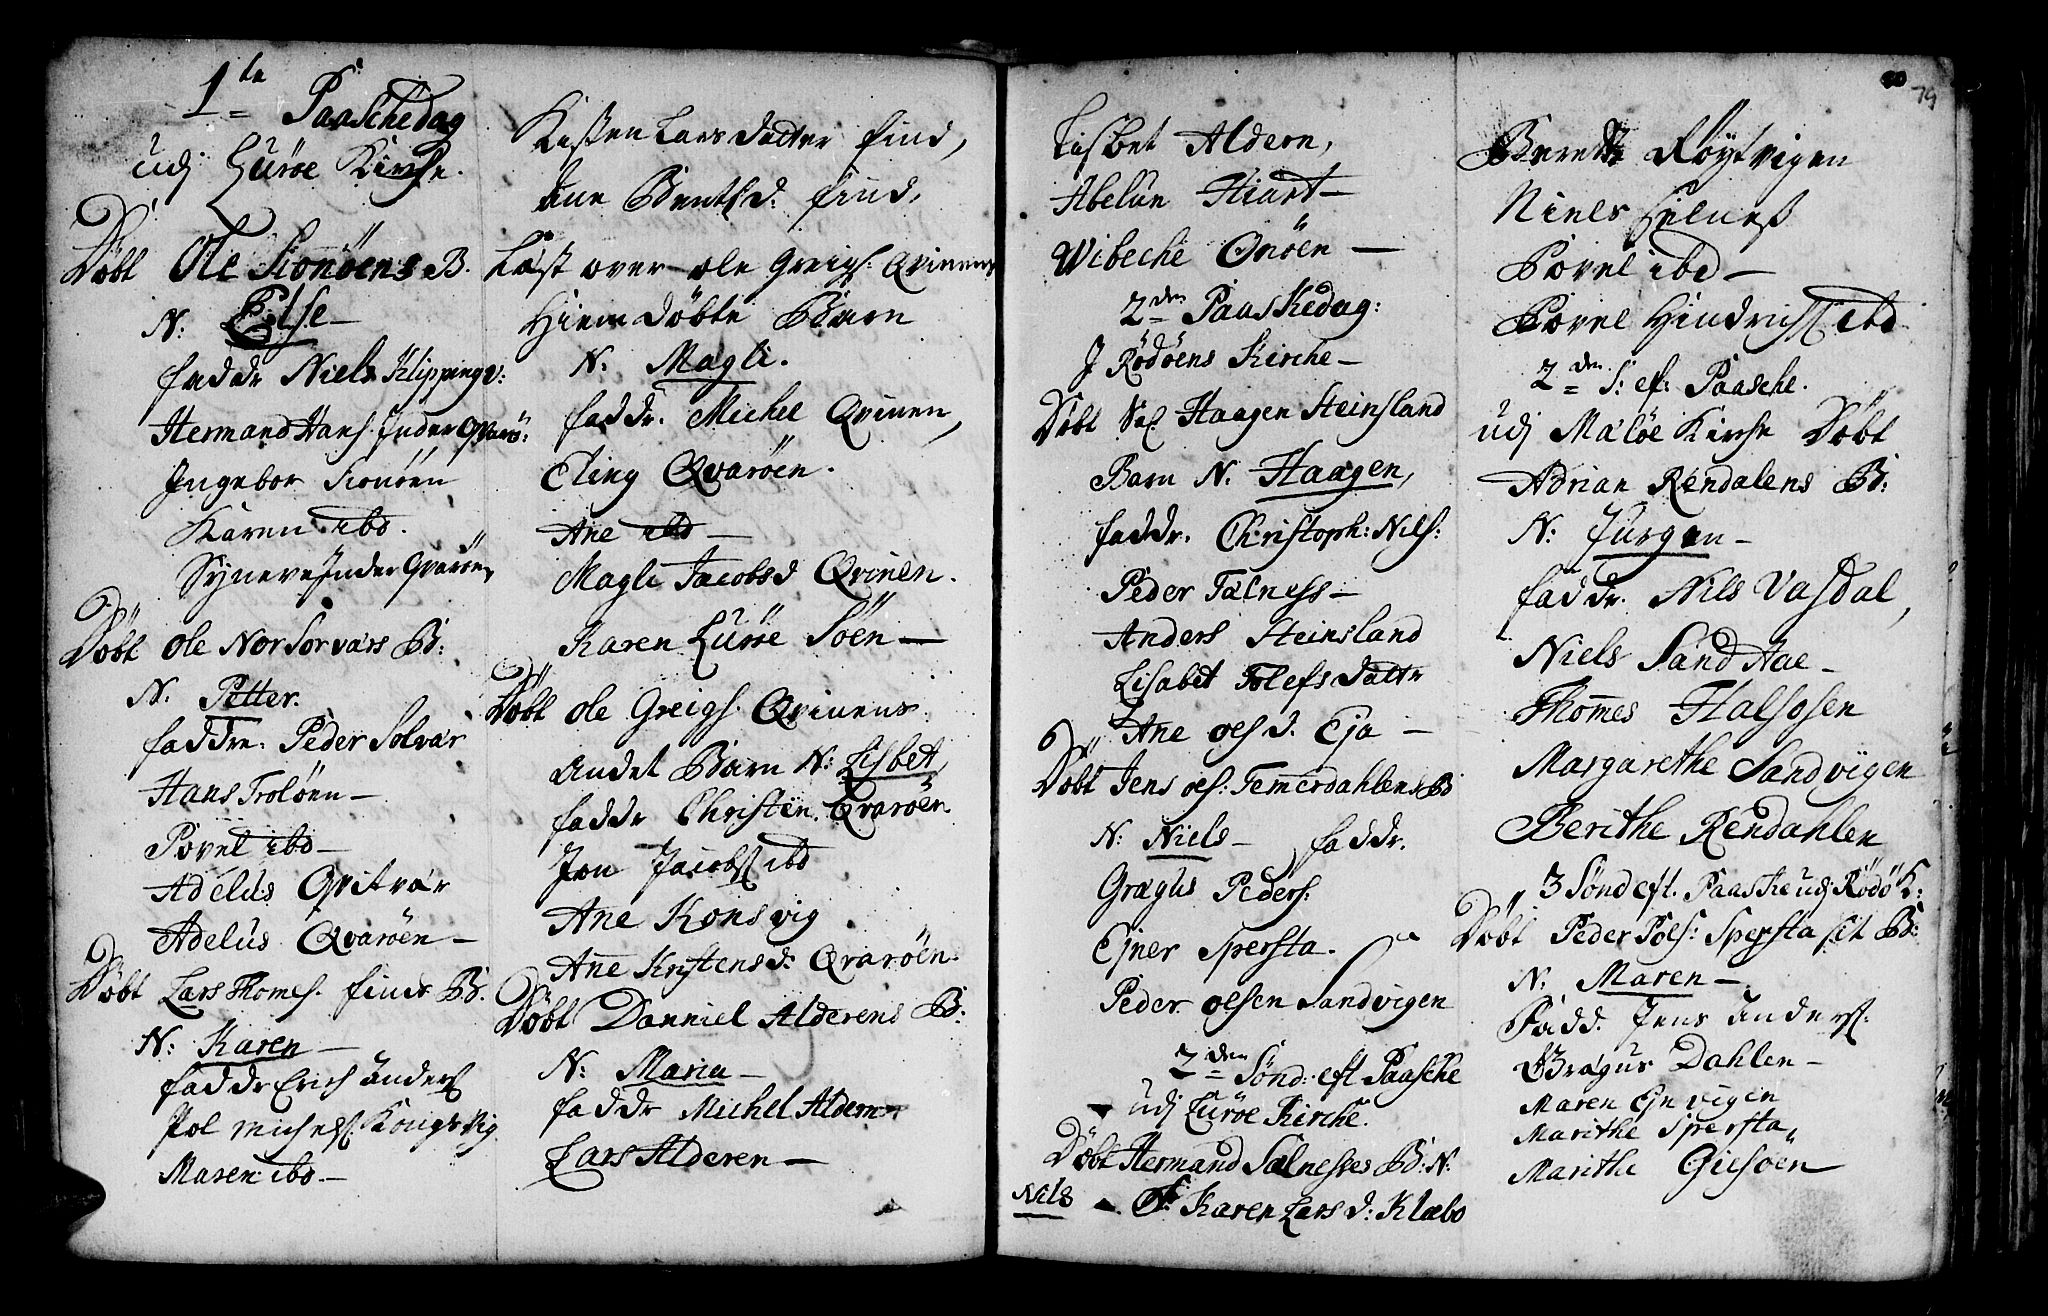 1te Paaschedag
udj Lurøe Kirche.
Døbt Ole Sionøens B.
N: Else
faddr Niels Klipping v:
Hermand Hans. Inder Qvarø:
Ingebor Sionøen
Karen ibd.
Syneve Inder Qvarøen
Døbt Ole Nor Sorvars B:
N: Petter.
faddre. Peder Solvar
Hans Troløen
Povel ibd
Adelus Qvitvar
Adelus Qvarøen
Døbt Lars Thomes. find B.
N: Karen
faddr Erich Anders
Pol Michels. Kongsvig
Maren ibd
Kisten Lars datter find,
Ane Bentsd. find,
Læst over ole Greigs: Qvinens
Hieme Døbte Barn
N. Magli.
faddr. Michel Qvinen,
Eling Qvarøen.
Ane ibd
Magli Jacobsd Qvinen.
Karen Lurøe Søen
Døbt ole Greigs. Qvinens
Andet Barn N: Lisbet,
faddr Christen. Qvarøen.
Jon Jacobs ibd
Ane Konsvig
Ane Kristensd: Qvarøen.
Døbt Danniel Alderens B:
N: Maria
faddr Michel Aldern
Lars Alderen
80
79
Lisbet Aldern,
Abelun Hiart
Wibeche Onøen
2den Paaskedag:
J Rødøens Kirche
Døbt Sl Haagen Steinsland
Barn N. Haagen,
faddr. Christoph: Nils:
Peder Falness
Anders Steinsland
Lisabet Tolefs datr
Ane oes d. Eja
Døbt Jens oes: Temerdahlens B
N: Niels faddr.
Grægus Peders:
Ejner Spersta.
Peder oesen Sandvigen
2den Sønd: eft Paasche
udj Lurøe Kirche.
Døbt Hermand Salnesses B: N:
Nils F Karen Lars d: Klæbo
Berette Røytvigen
Niels Selnes
Povel ibd
Povel Hindrichs ibd
2den S: ef: Paasche.
udj Maløe Kirche Døbt
Adrian Rendalens B:
N: Jurgen
faddr. Nils Vasdal,
Niels Sand Aae
Thomes Halsosen
Margarethe Sandvigen
Berithe Rendahlen
3 Sønd eft. Paaske udj Rødø K:
Døbt Peder Poes: Spersta sit B:
N: Maren
Fadd. Jens Anders.
Gragus Dahlen
Maren Ejnvigen
Marithe Spersta,
Marithe Giesøen